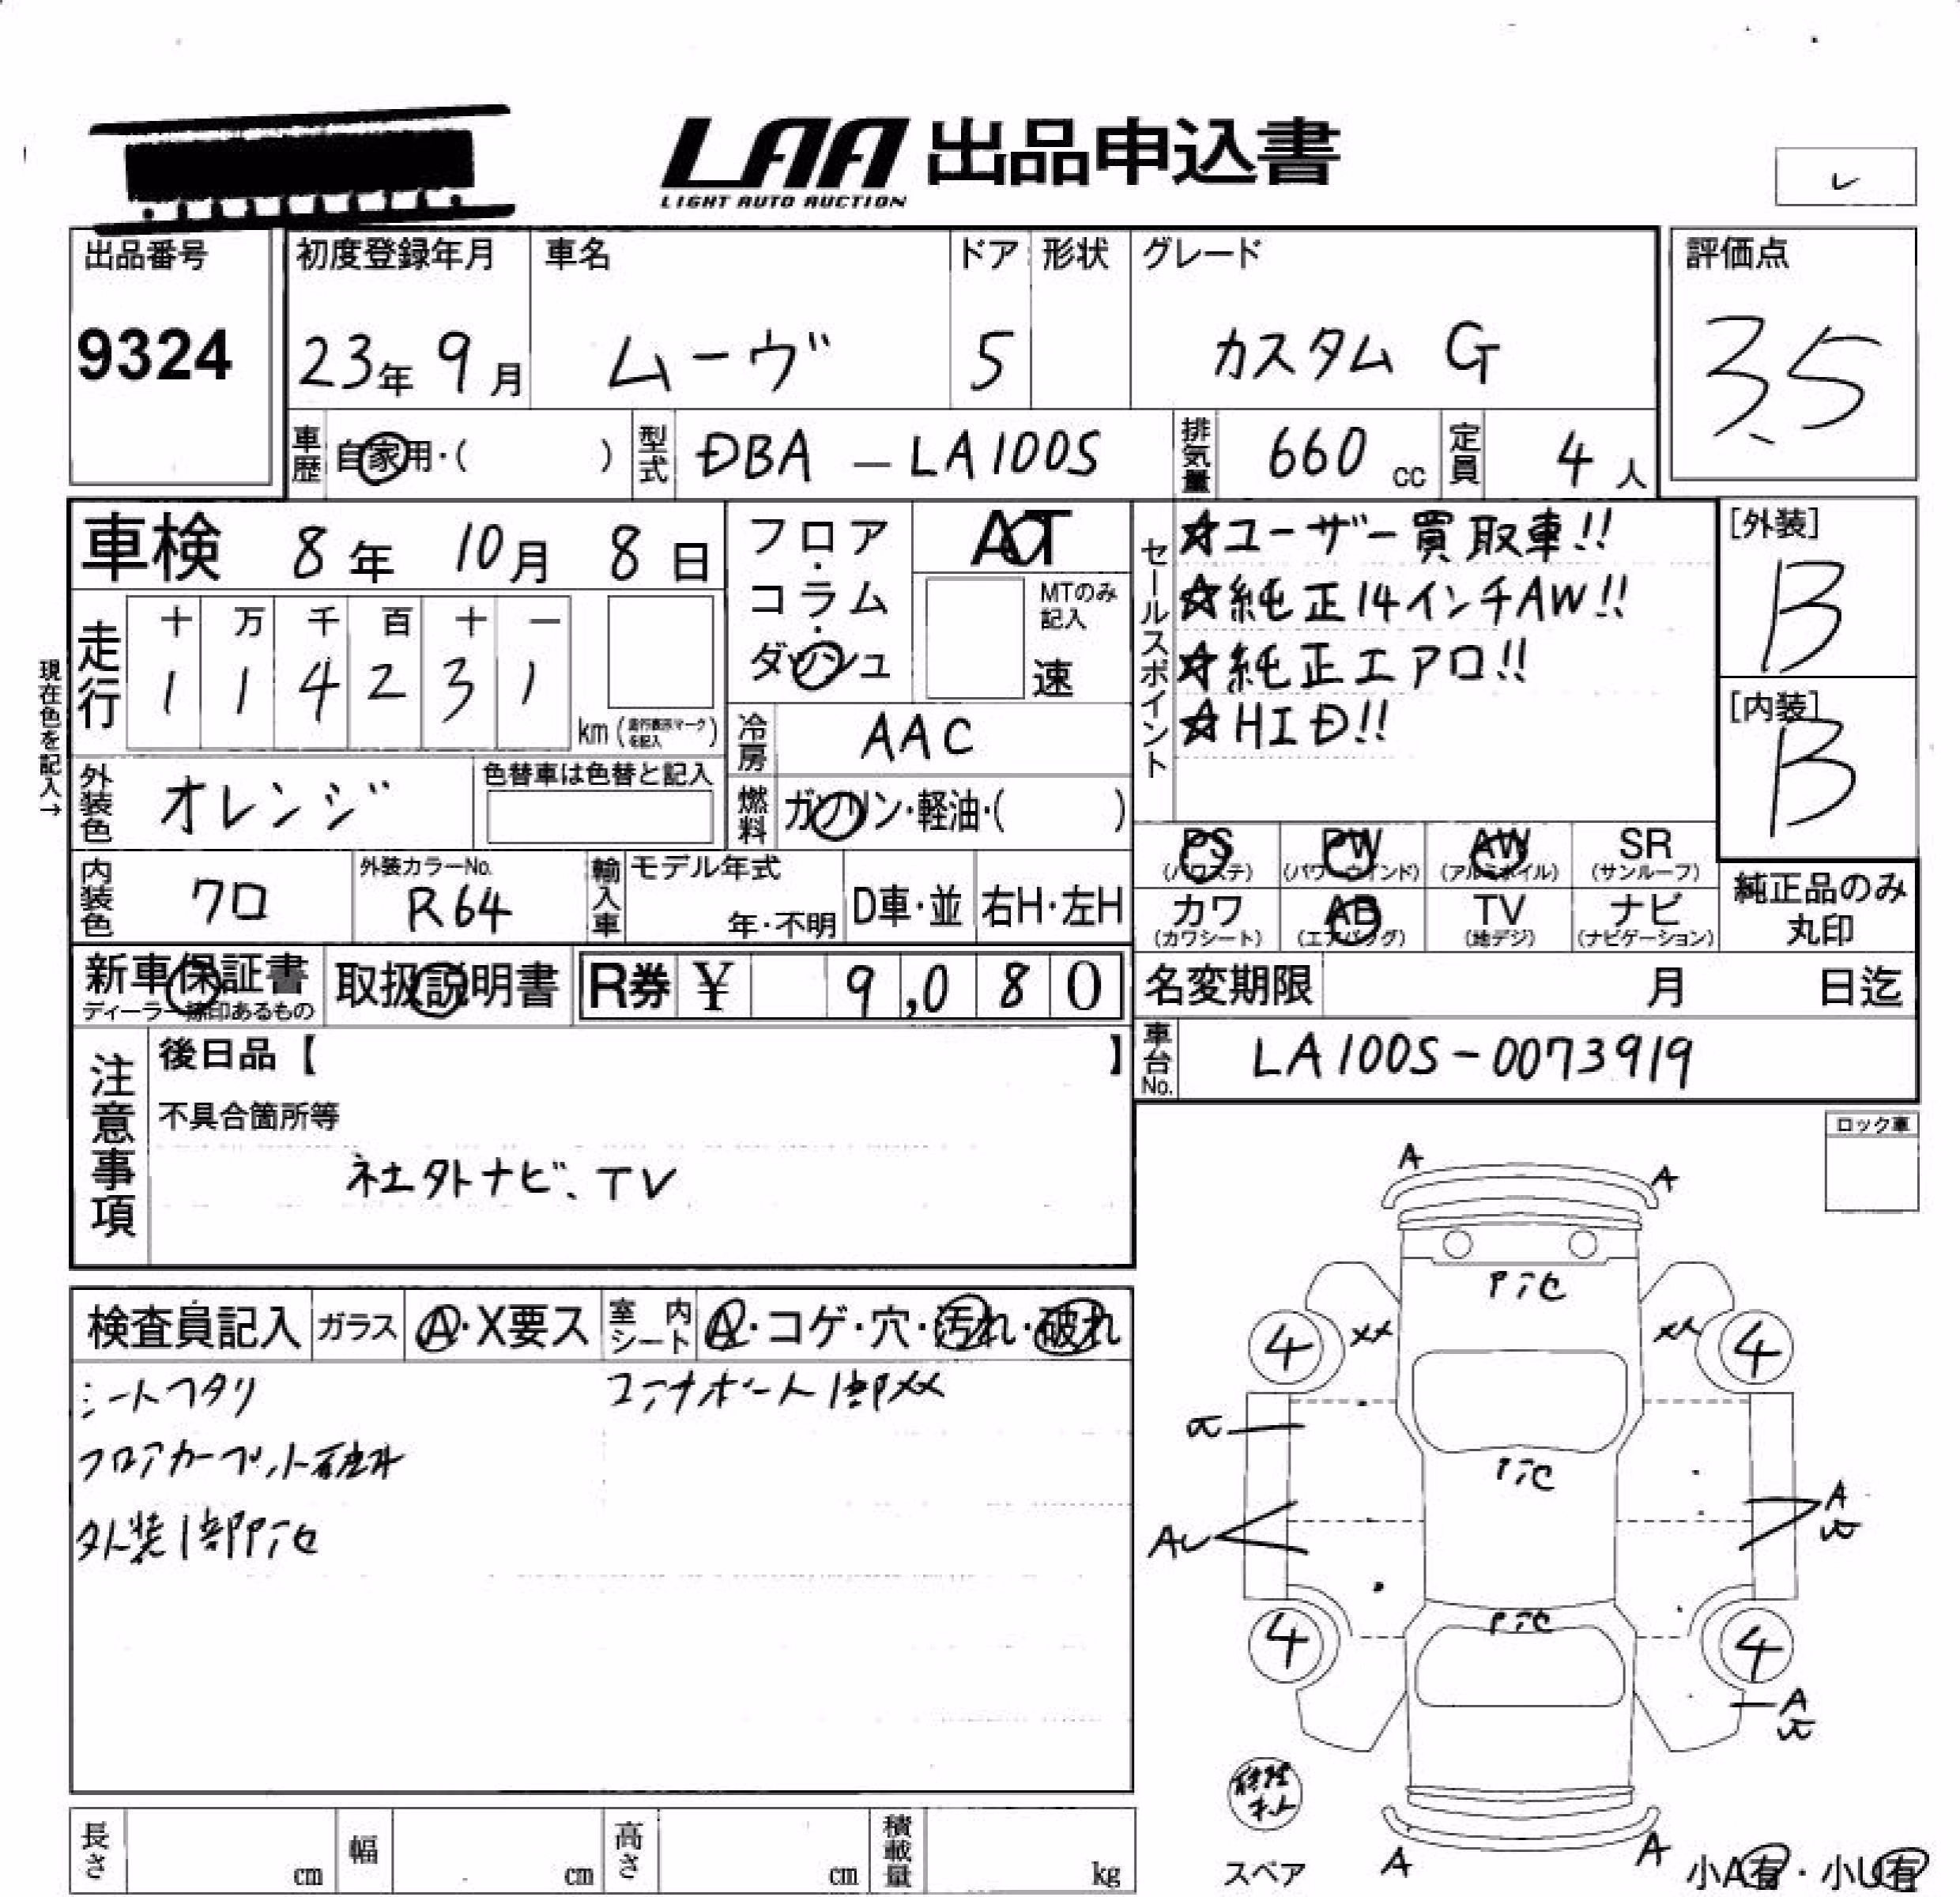 LAA 出品申込書
LIGHT AUTO AUCTION
出品番号 初度登録年月 車名 ドア 形状 グレード 評価点
9324 23年 9月 ムーヴ 5 カスタム G 3.5
車歴 自家用・( ) 型式 DBA － LA100S 排気量 660 cc 定員 4 人
車検 8年 10月 8日
フロア・コラム・ダッシュ
AT
MTのみ記入
速
セールスポイント
☆ユーザー買取車!!
☆純正14インチAW!!
☆純正エアロ!!
☆HID!!
[外装]
B
[内装]
B
現在色を記入→
走行 十 万 千 百 十 一
1 1 4 2 3 1
km (走行表示マークを記入)
冷房 AAC
外装色 オレンジ 色替車は色替と記入
燃料 ガソリン・軽油・( )
PS AW SR
PW
(パワステ) (パワーウインド) (アルミホイル) (サンルーフ)
カワ AB TV ナビ
(カワシート) (エアバッグ) (地デジ) (ナビゲーション)
純正品のみ
丸印
内装色 クロ 外装カラーNo. R64
輸入車 モデル年式 年・不明 D車・並 右H・左H
新車保証書
ディーラー捺印あるもの
取扱説明書
R券 ¥ 9,080
名変期限 月 日迄
車台No. LA100S-0073919
注意事項
後日品【 】
不具合箇所等
社外ナビ、TV
ロック車
検査員記入 ガラス A・X要ス 室内シート A・コゲ・穴・汚れ・破れ
シートヘタリ
フロアカーペット
外装1部
1部XX
A
A
XX
XX
4
4
A
A
4
4
A
A
A
スペア
小A有・小U有
長さ cm 幅 cm 高さ cm 積載量 kg